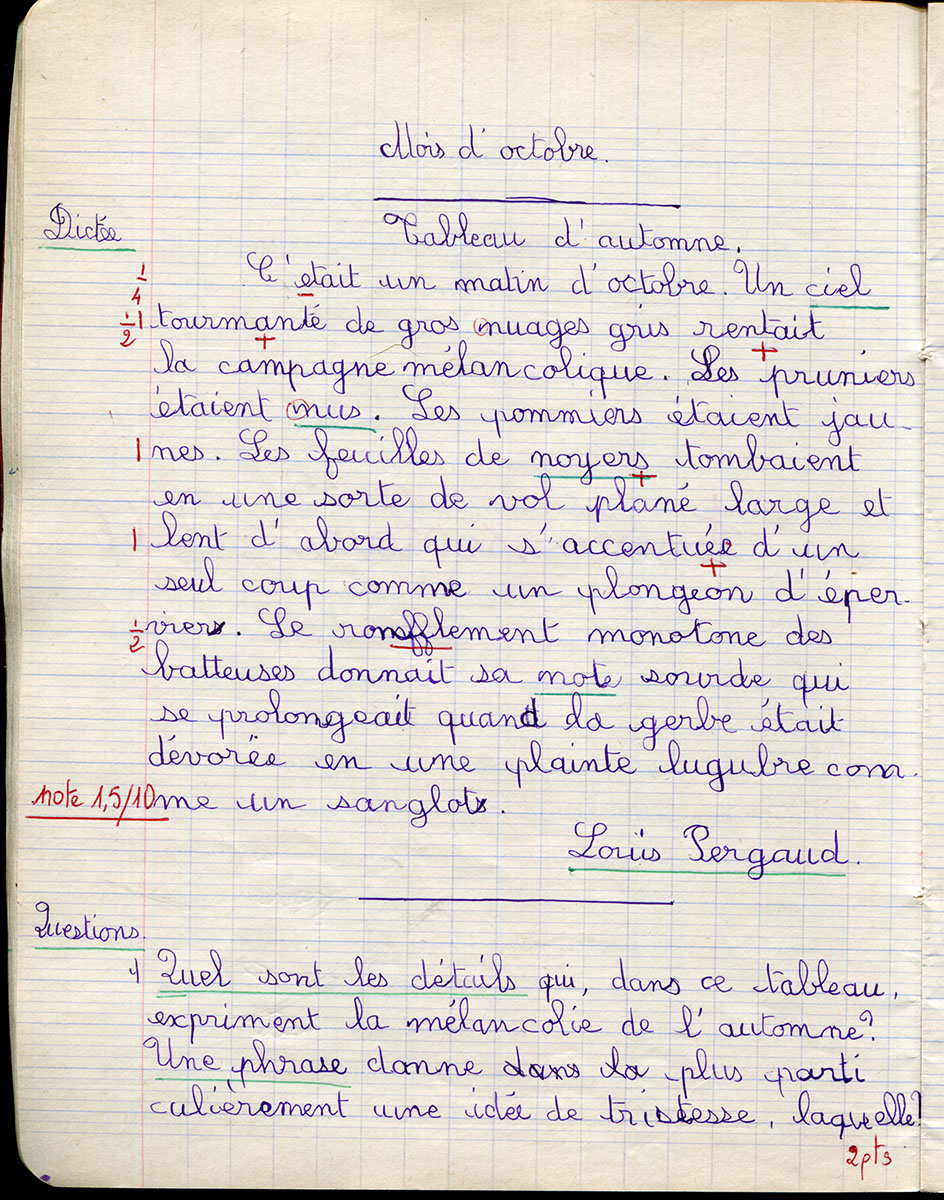 Mois d'octobre.
Dictée
Tableau d'automne.
1/4 C'était un matin d'octobre. Un ciel
1/2 1 tourmanté de gros nuages gris rentait
la campagne mélancolique. Les pruniers
étaient nus. Les pommiers étaient jau-
1 nes. Les feuilles de noyers tombaient
en une sorte de vol plané large et
1 lent d'abord qui s'accentuée d'un
seul coup comme un plongeon d'éper-
1/2 viers. Le ronfflement monotone des
batteuses donnait sa note sourde qui
se prolongeait quand la gerbe était
dévorée en une plainte lugubre com-
note 1,5/10 me un sanglots.
Louis Pergaud.
Questions.
1) Quel sont les détails qui, dans ce tableau,
expriment la mélancolie de l'automne?
Une phrase donne dans la plus parti
culièrement une idée de tristesse, laquelle?
2pts